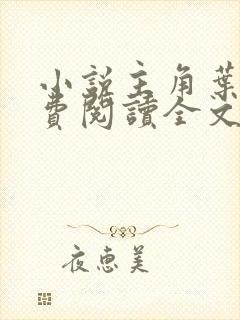 小說主角葉
費閱讀全文
夜恵美